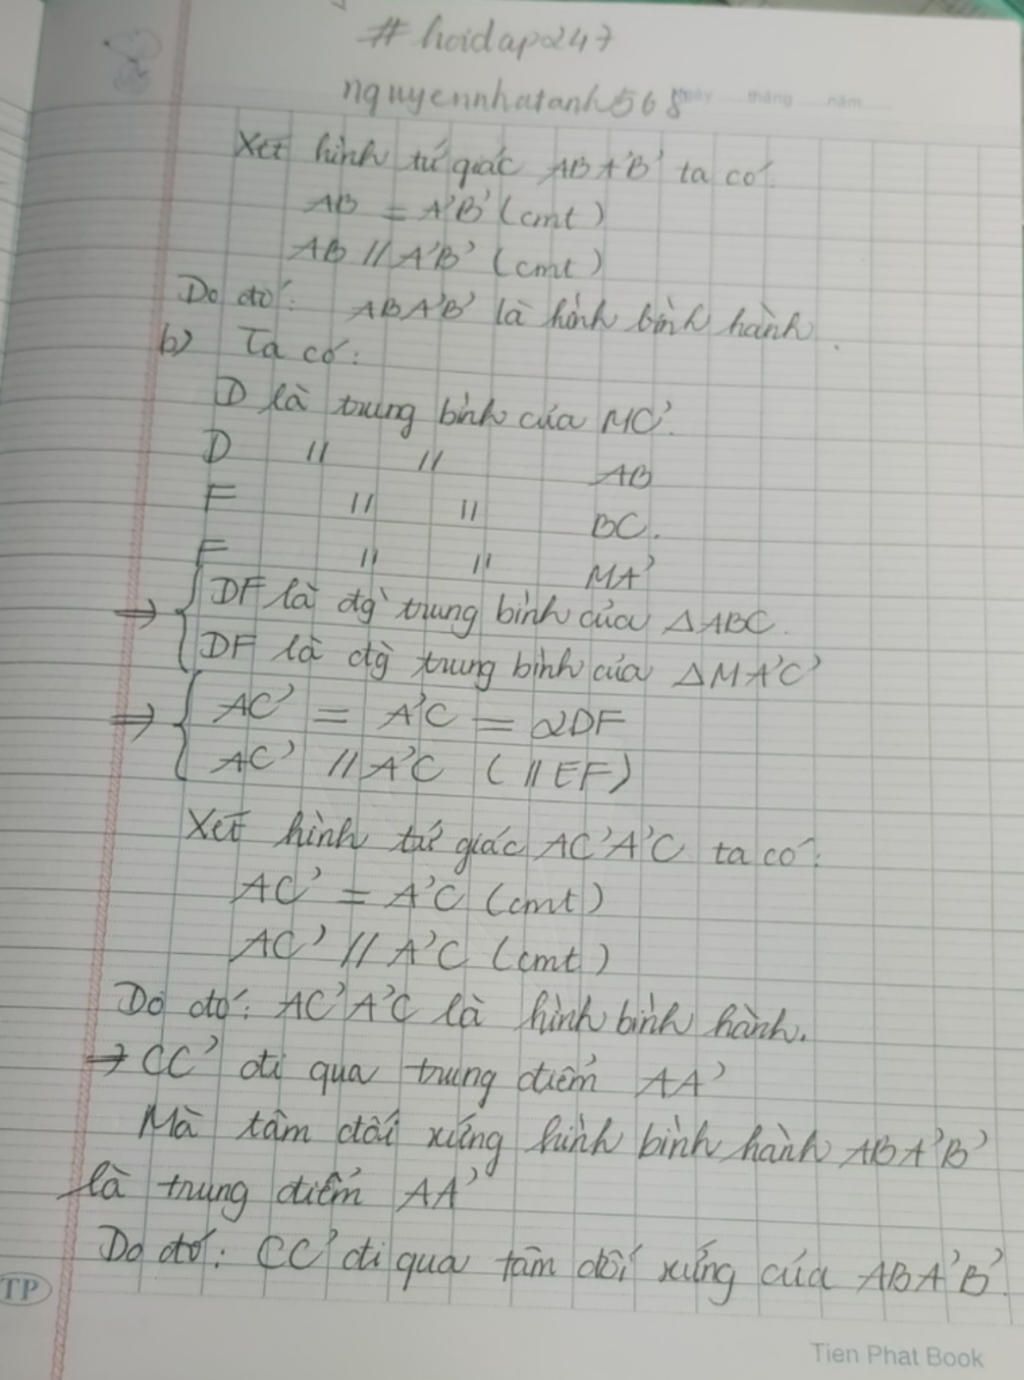 #hoidap247
nguyennhatanh568
Ngày tháng năm
Xét hình tứ giác ABA'B' ta có:
AB = A'B' (cmt)
AB // A'B' (cmt)
Do đó: ABA'B' là hình bình hành.
b) Ta có:
D là trung bình của MC'.
D " " AB
F " " BC.
F " " MA'
⇒ { DF là đg` trung bình của ΔABC.
{ DF là đg` trung bình của ΔMA'C'
⇒ { AC' = A'C = 2DF
{ AC' // A'C (//EF)
Xét hình tứ giác AC'A'C ta có:
AC' = A'C (cmt)
AC' // A'C (cmt)
Do đó: AC'A'C là hình bình hành.
→ CC' đi qua trung điểm AA'
Mà tâm đối xứng hình bình hành ABA'B'
là trung điểm AA'
Do đó: CC' đi qua tâm đối xứng của ABA'B'.
TP
Tien Phat Book